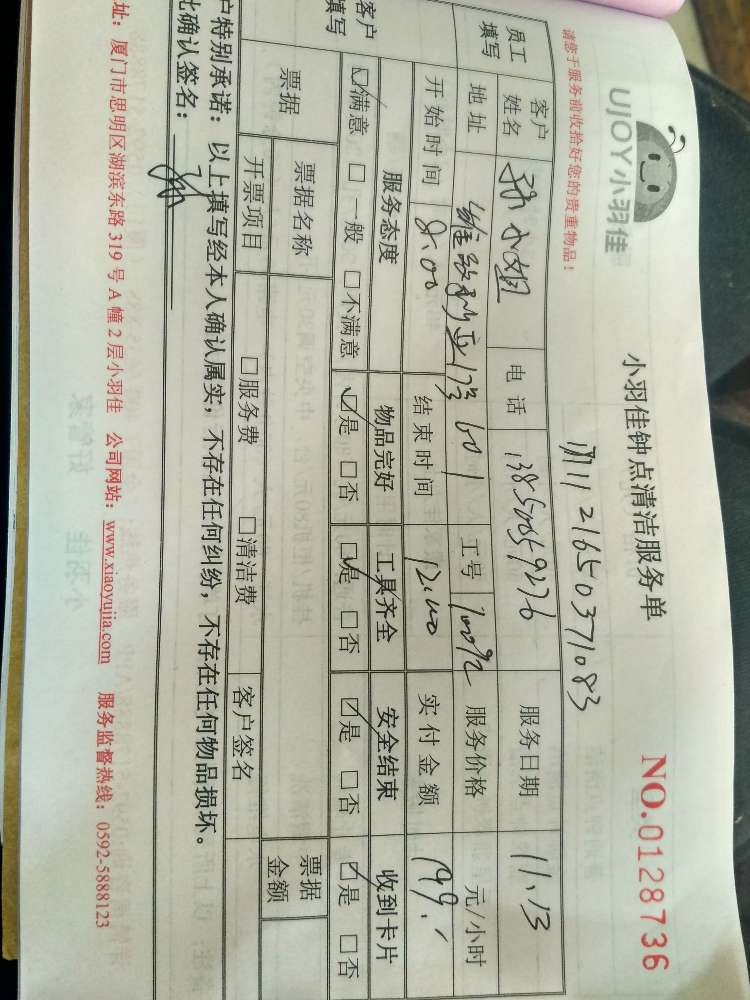 请您于服务前收拾好您的贵重物品！
UJOY小羽佳
小羽佳钟点清洁服务单
NO.0128736
1711121650371083
员工填写 客户姓名 孙小姐 电话 服务日期 11.13
地址 维多利亚 601 工号 服务价格 元/小时
开始时间 8:00 结束时间 12:00 实付金额 199.
客户填写 服务态度 物品完好 工具齐全 安全结束 收到卡片
☑满意 □一般 □不满意 ☑是 □否 ☑是 □否 ☑是 □否 ☑是 □否
票据 票据名称 票据金额
开票项目 □服务费 □清洁费 客户签名
户特别承诺：以上填写经本人确认属实，不存在任何纠纷，不存在任何物品损坏。
此确认签名：
址：厦门市思明区湖滨东路 319 号 A 幢 2 层小羽佳 公司网站：www.xiaoyujia.com 服务监督热线：0592-5888123